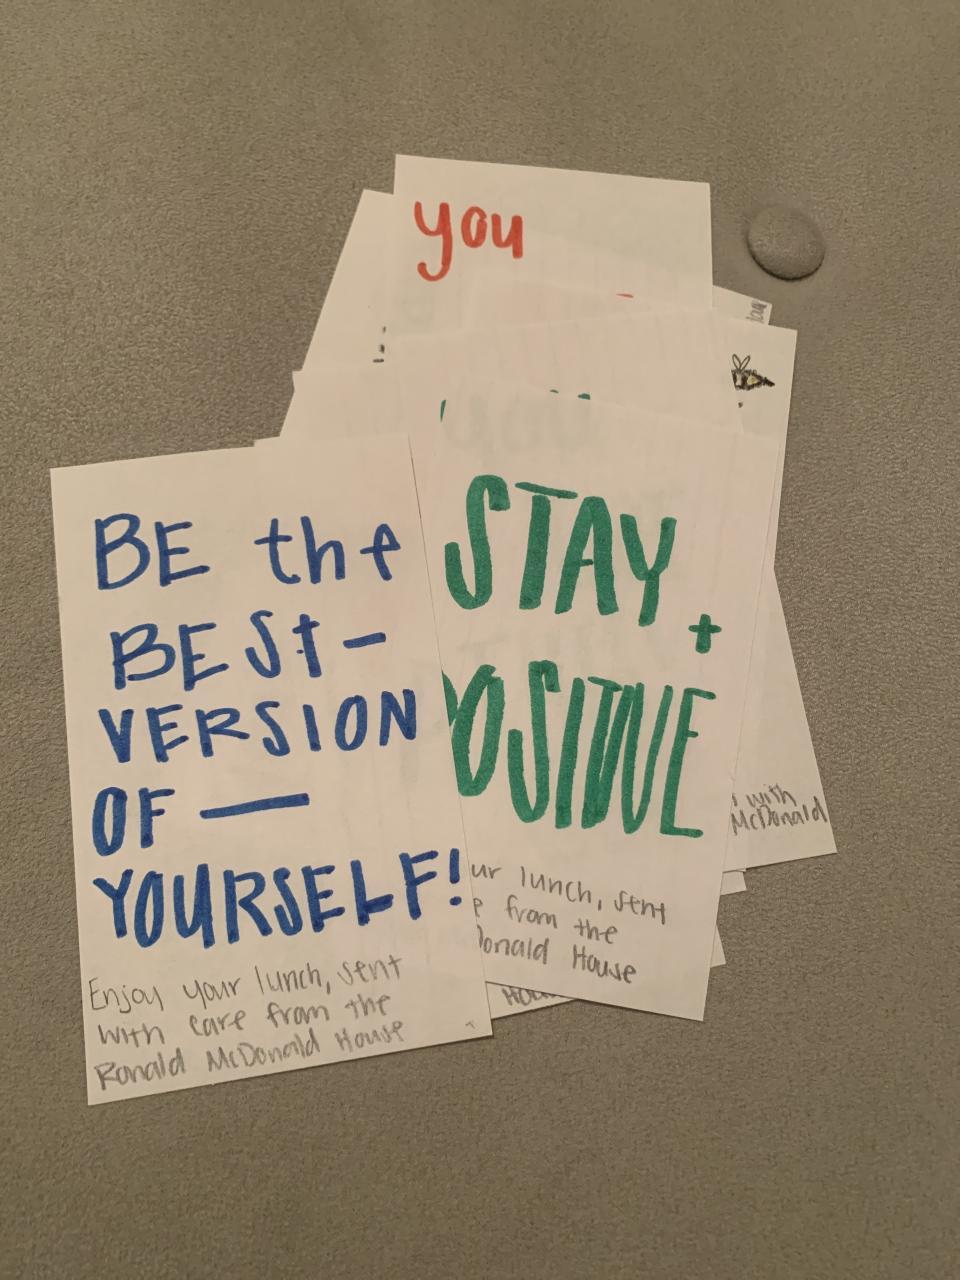 you
BE the
BEST-
VERSION
OF —
YOURSELF!
Enjoy your lunch, sent
with care from the
Ronald McDonald House
STAY +
POSITIVE
ur lunch, sent
e from the
Donald House
with
McDonald